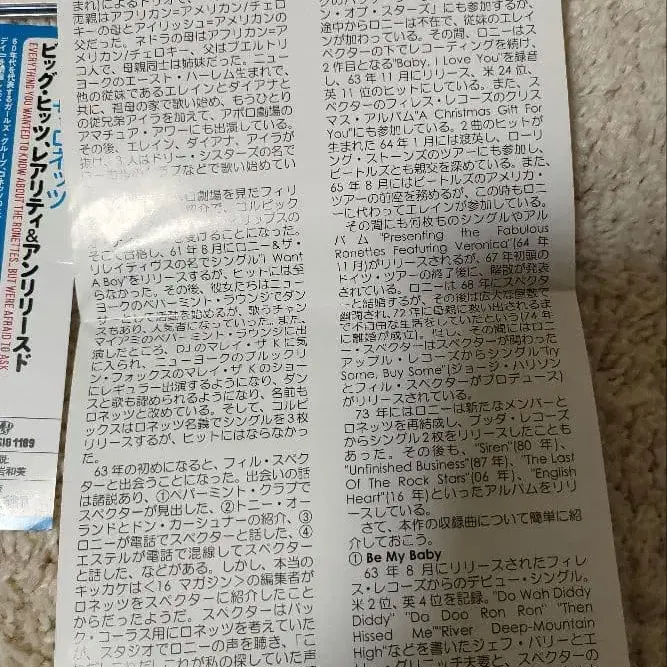 ロネッツ
ビッグ・ヒッツ、レアリティ&アンリリースド
EVERYTHING YOU WANTED TO KNOW ABOUT THE RONETTES, BUT WERE AFRAID TO ASK
1189
両親はアフリカン=アメリカン/チェロ
キーの母とアイリッシュ=アメリカンの
父だった。ネドラの母はアフリカン=ア
メリカン/チェロキー、父はプエルトリ
コ人で、母親同士は姉妹だった。ニュー
ヨークのイースト・ハーレム生まれで、
他の従妹であるエレインとダイアナと
共に、祖母の家で歌い始め、もうひとり
の従兄弟アイラを加えて、アポロ劇場の
アマチュア・アワーにも出演している。
その後、エレイン、ダイアナ、アイラが
抜け、3人はドリー・シスターズの名で
などで歌い始めてい
劇場を見たフィリ
で、コルピック
を受けることになった。
そこで合格し、61年8月にロニー&ザ・
リレイティヴスの名でシングル"I Want
A Boy"をリリースするが、ヒットには至
らなかった。その後、彼女たちはニュー
ヨークのペパーミント・ラウンジでダン
サーとして活動を始めるが、歌うチャン
スもあり、人気者になっていった。また、
マイアミのペパーミント・ラウンジに出
演したところ、DJのマレイ・ザ・Kに気
に入られ、ニューヨークのブルックリ
ン・フォックスのマレイ・ザ・Kのショー
にレギュラー出演するようになり、ダン
スと歌も認められるようになり、名前も
ロネッツと改めている。そして、コルピ
ックスはロネッツ名義でシングルを3枚
リリースするが、ヒットにはならなかっ
た。
63年の初めになると、フィル・スペク
ターと出会うことになった。出会いの話
は諸説あり、①ペパーミント・クラブで
スペクターが見出した、②トニー・オー
ランドとドン・カーシュナーの紹介、③
ロニーが電話でスペクターと話した、④
エステルが電話で混線してスペクター
と話した、などがある。しかし、本当の
キッカケは<16 マガジン>の編集者が
ロネッツをスペクターに紹介したこと
からだったようだ。スペクターはバッ
ク・コーラス用にロネッツを考えていた
が、スタジオでロニーの声を聴き、「こ
れだこれだ!これが私の探していた声
ン・オブ・スターズ」にも参加するが、
途中からロニーは不在で、従妹のエレイ
ンが加わっている。その間、ロニーはス
ペクターの下でレコーディングを続け、
2作目となる"Baby, I Love You"を録音
し、63年11月にリリース、米24位、
英11位のヒットにしている。また、ス
ペクターのフィレス・レコーズのクリス
マス・アルバム"A Christmas Gift For
You"にも参加している。2曲のヒットが
生まれた64年1月には渡英し、ローリ
ング・ストーンズのツアーにも参加し、
ビートルズとも親交を深めている。また、
65年8月にはビートルズのアメリカ・
ツアーの前座を務めるが、この時もロニ
ーに代わってエレインが参加している。
その間にも何枚ものシングルやアル
バム "Presenting the Fabulous
Ronettes Featuring Veronica"(64年
11月)がリリースされるが、67年初頭の
ドイツ・ツアーの終了後に、解散が発表
されている。ロニーは68年にスペクタ
ーと結婚するが、その後は広大な屋敷で
幽閉され、72年に母親に救い出されるま
で不自由な生活をしていたという(74年
に離婚が成立)。但し、その間にはロニ
ー・スペクターはスペクターが関わった
アップル・レコーズからシングル"Try
Some, Buy Some"(ジョージ・ハリソン
とフィル・スペクターがプロデュース)
がリリースされている。
73年にはロニーは新たなメンバーと
ロネッツを再結成し、ブッダ・レコーズ
からシングル2枚をリリースしたことも
あった。その後も、"Siren"(80年)、
"Unfinished Business"(87年)、"The Last
Of The Rock Stars"(06年)、"English
Heart"(16年)といったアルバムをリリ
ースしている。
さて、本作の収録曲について簡単に紹
介しておこう。
① Be My Baby
63年8月にリリースされたフィレ
ス・レコーズからのデビュー・シングル。
米2位、英4位を記録。"Do Wah Diddy
Diddy" "Da Doo Ron Ron" "Then
Hissed Me""River Deep-Mountain
High"などを書いたジェフ・バリーとエ
リー・グリニッチ夫妻と、スペクターの